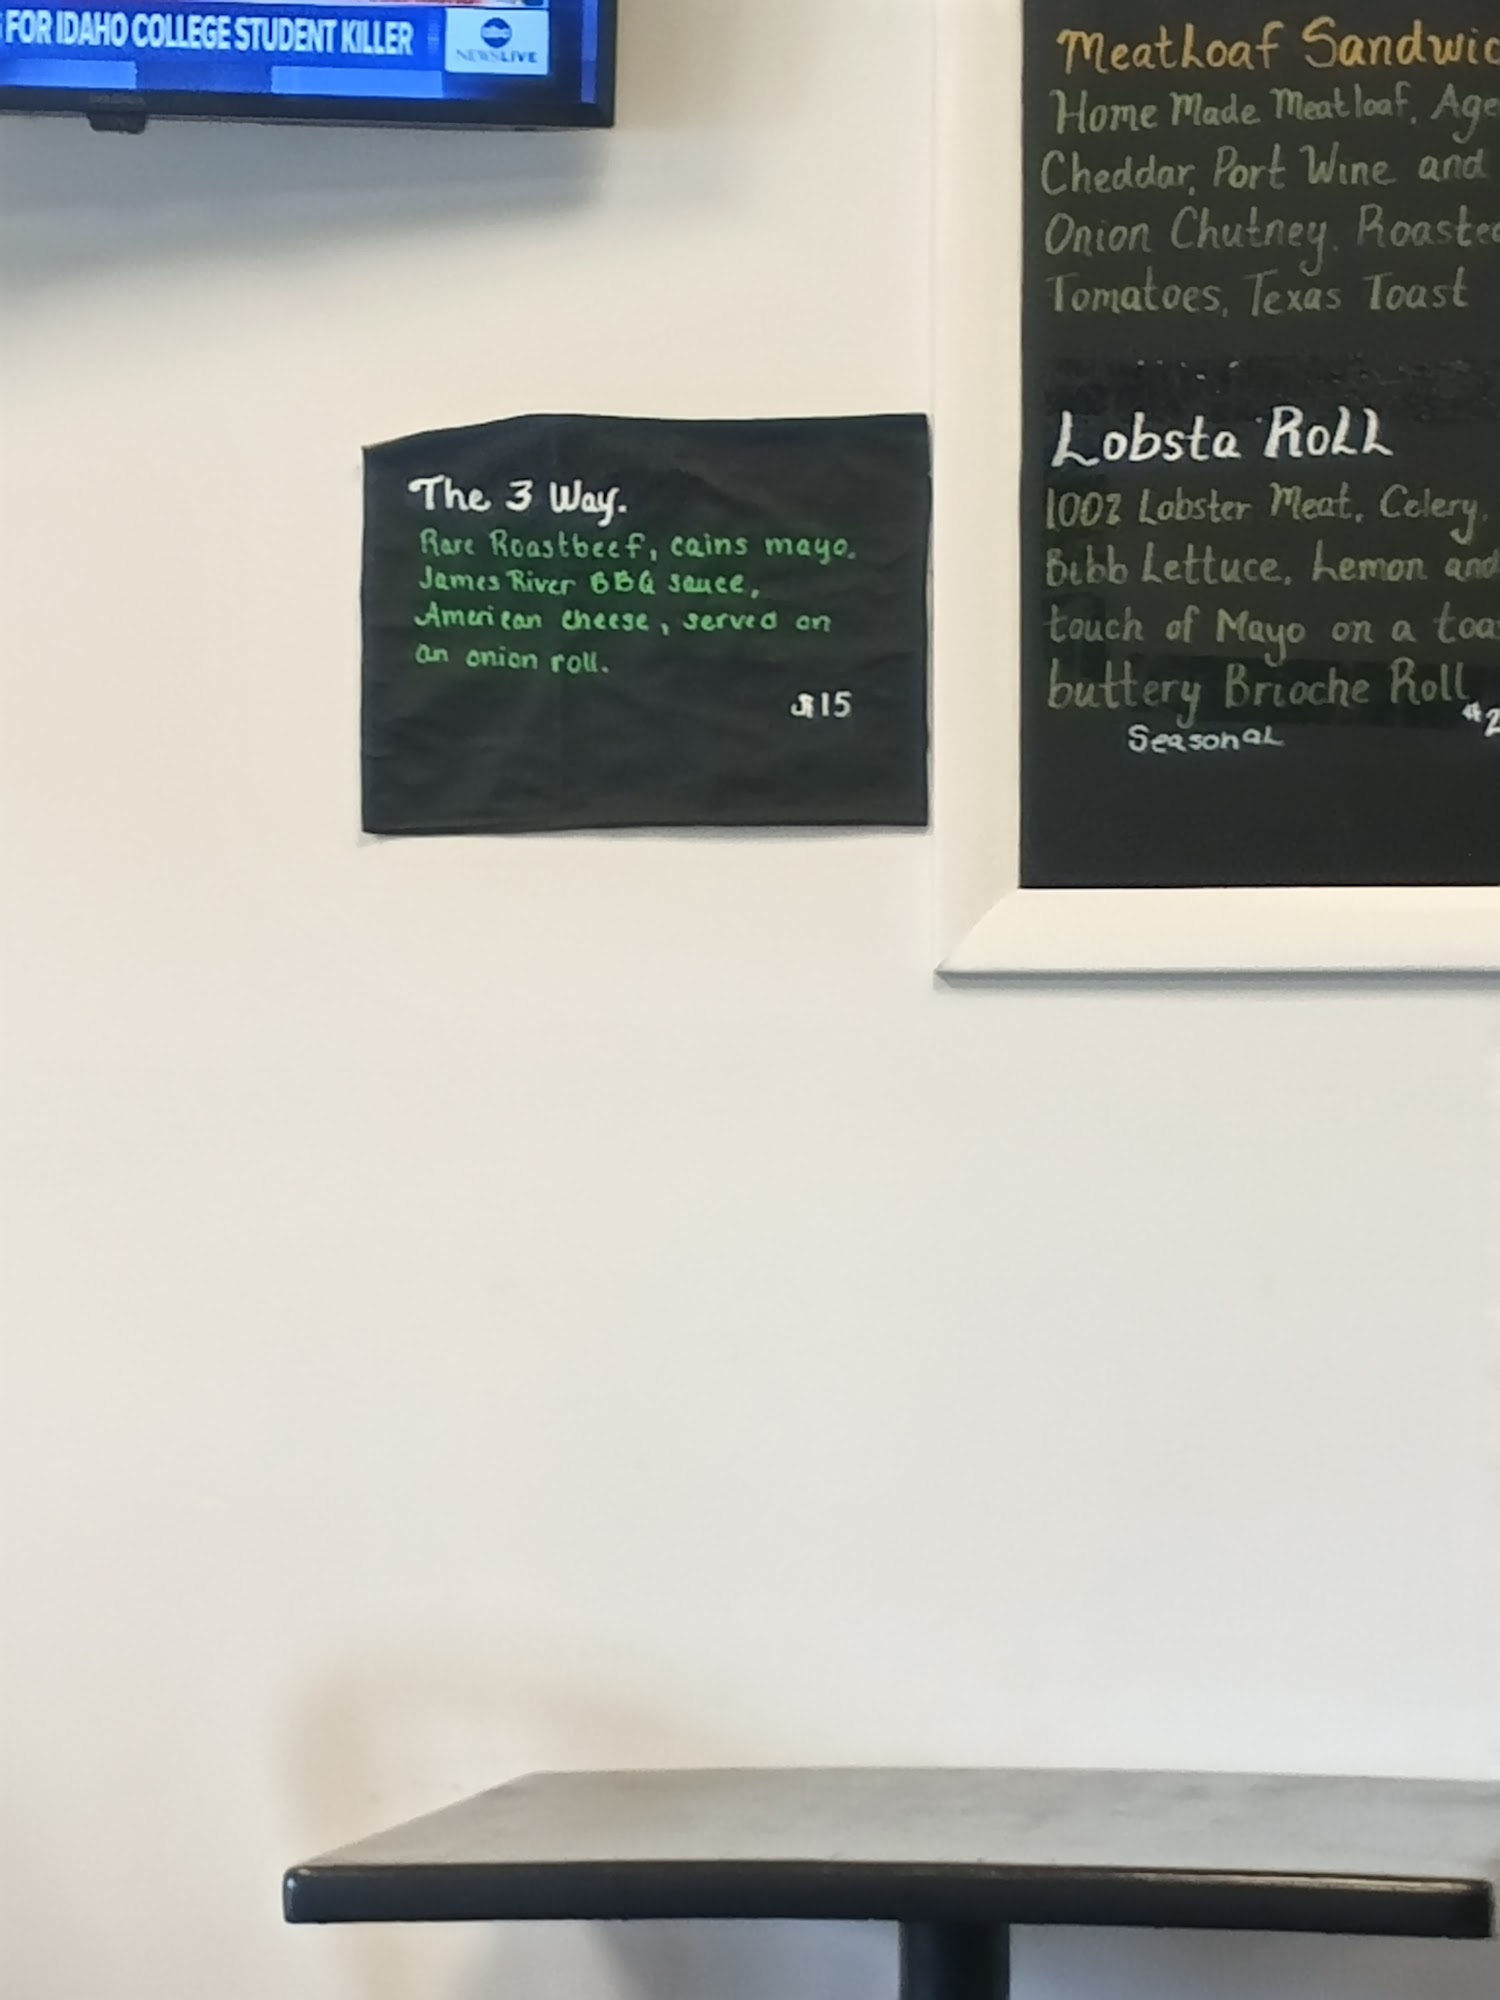 FOR IDAHO COLLEGE STUDENT KILLER
abc
NEWS LIVE
The 3 Way.
Rare Roastbeef, cains mayo.
James River BBQ sauce,
American cheese, served on
an onion roll.
$15
Meatloaf Sandwic
Home Made Meatloaf, Age
Cheddar, Port Wine and
Onion Chutney, Roasted
Tomatoes, Texas Toast
Lobsta Roll
100% Lobster Meat, Celery,
Bibb Lettuce, Lemon and
touch of Mayo on a toa
buttery Brioche Roll
$2
Seasonal